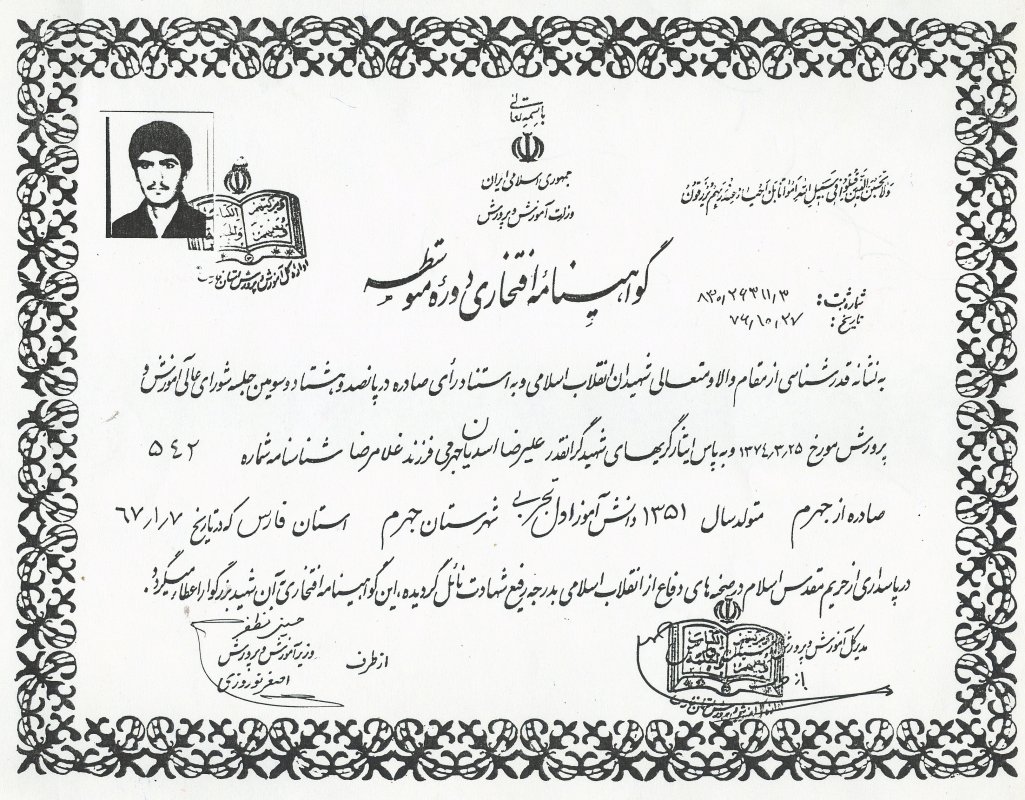 باسمه تعالی
جمهوری اسلامی ایران
وزارت آموزش و پرورش
ولا تحسبن الذین قتلوا فی سبیل الله امواتا بل احیاء عند ربهم یرزقون
گواهینامهٔ افتخاری دورهٔ متوسطه
شماره ثبت: ۸۳۰٫۲۶۳۱۱٫۳
تاریخ: ۷۶٫۱۰٫۲۷
اداره کل آموزش و پرورش استان فارس
به نشانه قدرشناسی از مقام والا و متعالی شهیدان انقلاب اسلامی و به استناد رأی صادره در پانصد و هشتاد و سومین جلسه شورای عالی آموزش و
پرورش مورخ ۱۳۷۴٫۳٫۲۵ و به پاس ایثارگریهای شهید گرانقدر علیرضا اسدیان جهرمی فرزند غلامرضا شناسنامه شماره ۵۴۲
صادره از جهرم متولد سال ۱۳۵۱ دانش آموز اول تجربی شهرستان جهرم استان فارس که در تاریخ ۶۷٫۱٫۷
در پاسداری از حریم مقدس اسلام در صحنه های دفاع از انقلاب اسلامی بدرجه رفیع شهادت نائل گردیده، این گواهینامه افتخاری آن شهید بزرگوار اعطاء میگردد.
مدیرکل آموزش و پرورش
از طرف
حسین مظفر
وزیر آموزش و پرورش
اصغر نوروزی